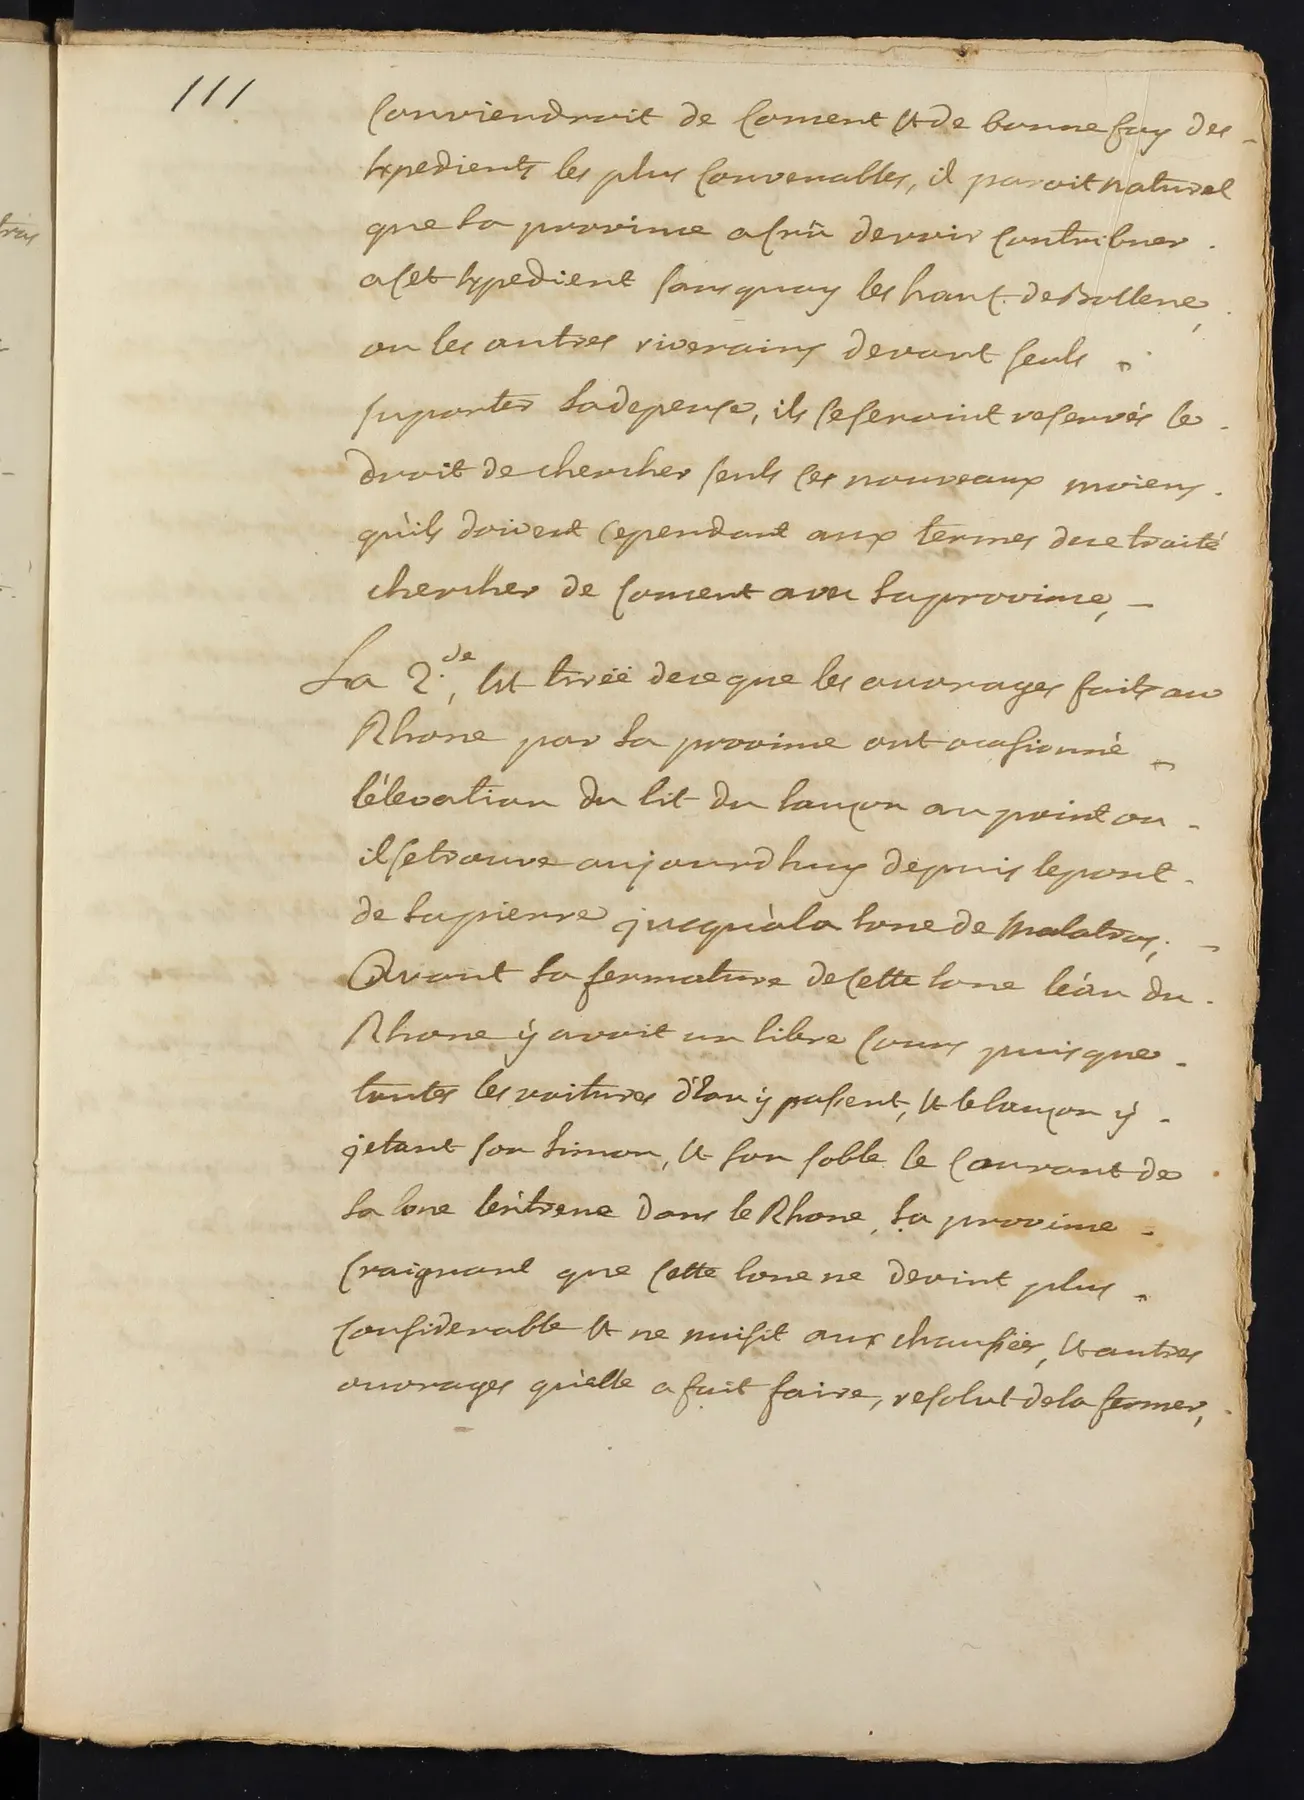 111
Conviendroit de Concert Et de bonne foy des
Expedients les plus Convenables, il paroit naturel
que La province a Crû devoir Contribuer
a Cet Expedient sans quoy les han.s de Bollene,
ou les autres riverains devant seuls
suporter La depense, ils se seroint reservés le
droit de chercher seuls ces nouveaux moiens
qu'ils doivent cependant aux termes du traité
chercher de Concert avec La province,
La 2.de, Est tirée de ce que les ouvrages faits au
Rhône par La province ont ocasionné
l'élevation du lit du lauzon au point ou
il se trouve aujourdhuy depuis le pont
de La pierre jusqu'à la lone de Malatras;
Avant La fermature de Cette lone l'éau du
Rhone ÿ avoit un libre Cours puisque
toutes les voitures d'Eau ÿ passent, Et le lauzon ÿ
jetant son Limon, Et son sable le Courant de
La lone l'entrene dans le Rhone, La province
Craignant que Cette lone ne devint plus
Considerable Et ne nuisit aux chaussées, Et autres
ouvrages qu'elle a fait faire, resolut de la fermer,
tras